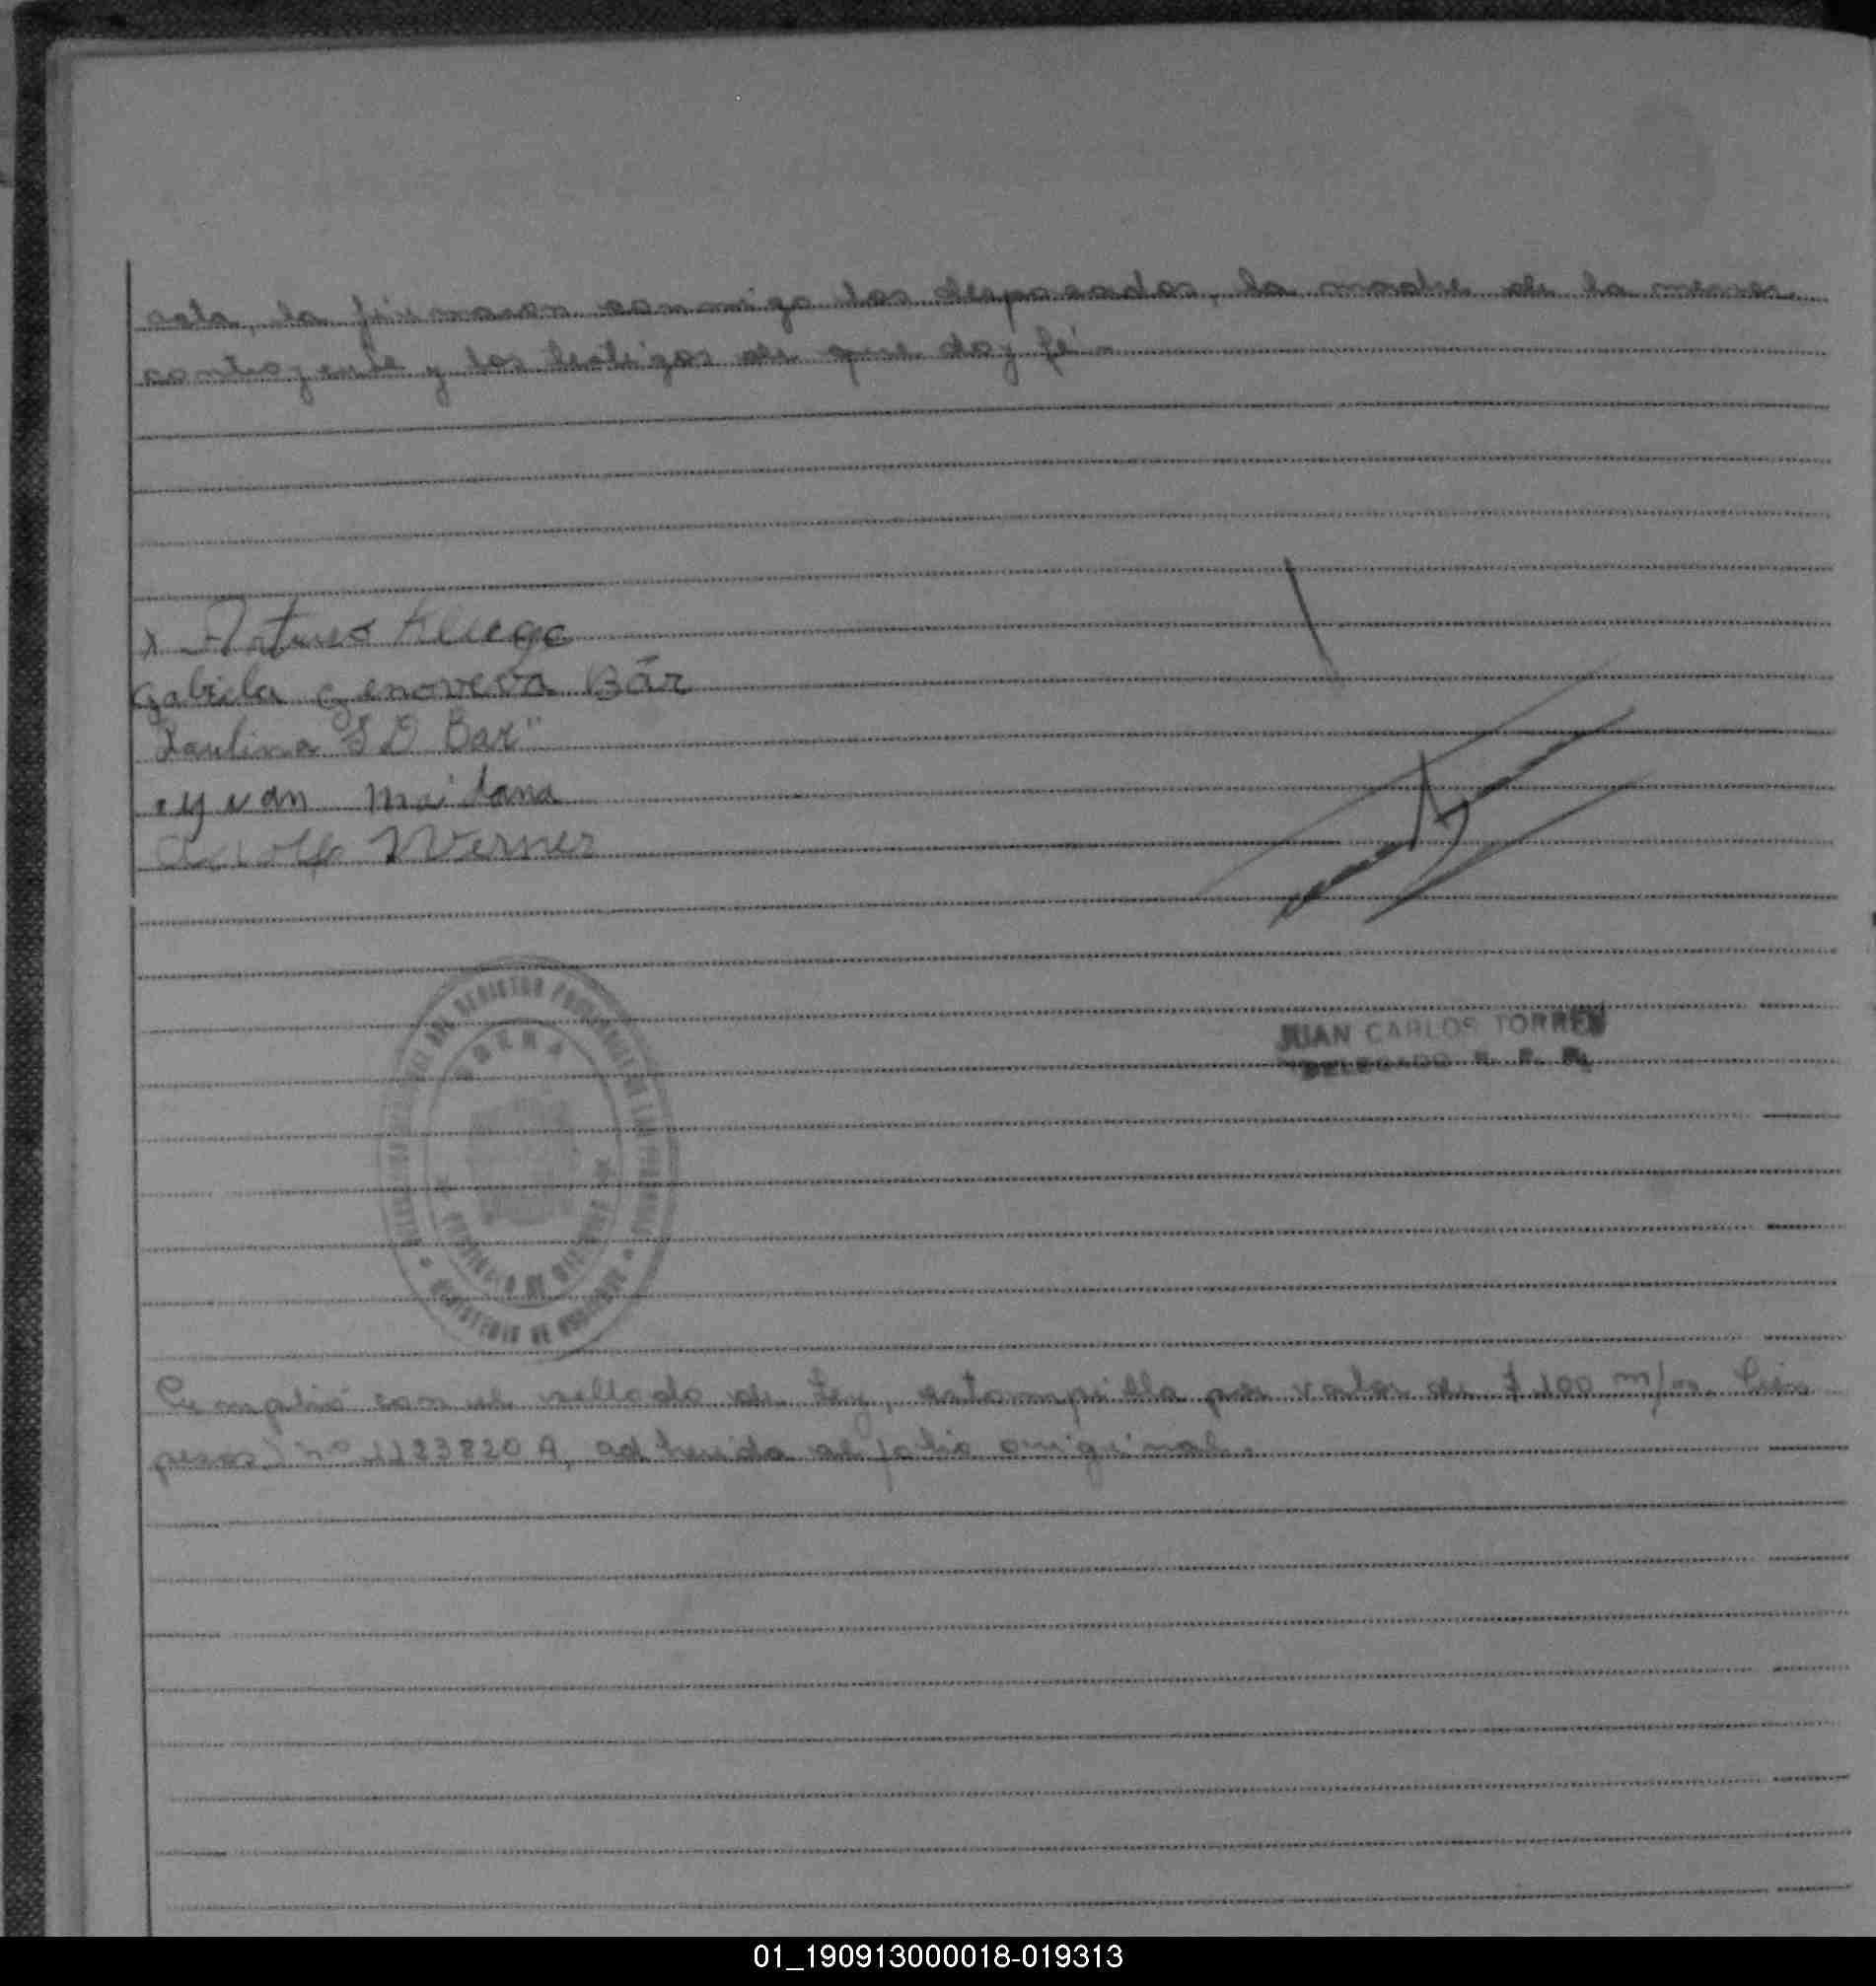 acta, la firmaron conmigo los desposados, la madre de la menor
contrayente y los testigos de que doy fé.-
x Arturo
Gabriela Genoveva Bär
Paulina S D Bar"
Maidana
Werner
REGISTRO PROVINCIAL DE LAS PERSONAS
OBERA
PROVINCIA DE MISIONES
MINISTERIO DE GOBIERNO
JUAN CARLOS TORRES
DELEGADO R. P. P.
Cumplió con el sellado de Ley, estampilla por valor de $ 100 m/n. Cien
pesos) nº 1123820 A, adherida al folio original.-
01_190913000018-019313